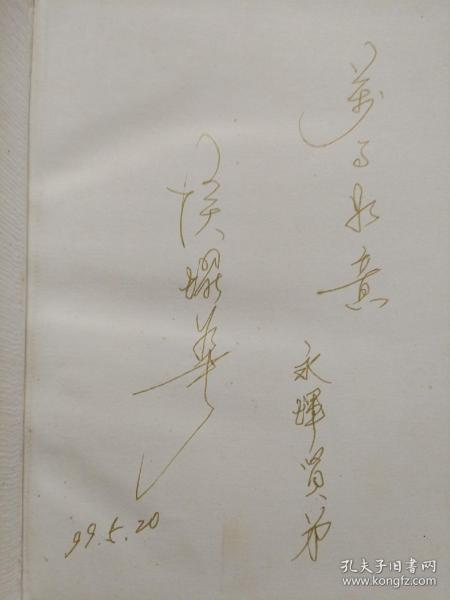 萬事如意
永輝贤弟
侯耀華
99.5.20
孔夫子旧书网
www.kongfz.com